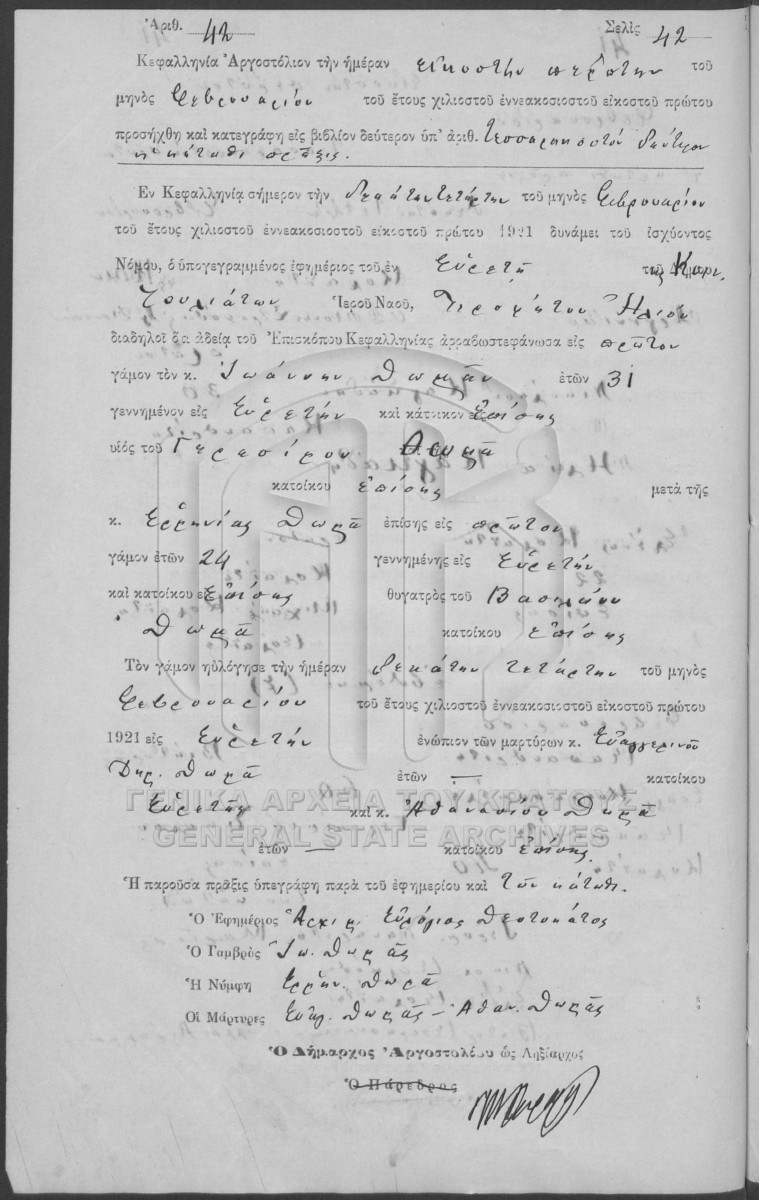 Ἀριθ. 42 Σελὶς 42
Κεφαλληνία Ἀργοστόλιον τὴν ἡμέραν εἰκοστὴν τοῦ
μηνὸς Φεβρουαρίου τοῦ ἔτους χιλιοστοῦ ἐννεακοσιοστοῦ εἰκοστοῦ πρώτου
προσήχθη καὶ κατεγράφη εἰς βιβλίον δεύτερον ὑπ' ἀριθ. τεσσαρακοστὸν δεύτερον
ἡ κάτωθι πρᾶξις.
Ἐν Κεφαλληνίᾳ σήμερον τὴν δεκάτην τετάρτην τοῦ μηνὸς Φεβρουαρίου
τοῦ ἔτους χιλιοστοῦ ἐννεακοσιοστοῦ εἰκοστοῦ πρώτου 1921 δυνάμει τοῦ ἰσχύοντος
Νόμου, ὁ ὑπογεγραμμένος ἐφημέριος τοῦ ἐν Εὐρετῇ
Ἱεροῦ Ναοῦ, Ἠλιοὺ
διαδηλοῖ ὅτι ἀδείᾳ τοῦ Ἐπισκόπου Κεφαλληνίας ἀρραβωστεφάνωσα εἰς πρῶτον
γάμον τὸν κ. Ἰωάννην Θωμᾶν ἐτῶν 31
γεννημένον εἰς Εὐρετὴν καὶ κάτοικον ἐπίσης
υἱὸς τοῦ Γερασίμου Θωμᾶ
κατοίκου ἐπίσης μετὰ τῆς
κ. Εἰρήνης Θωμᾶ ἐπίσης εἰς πρῶτον
γάμον ἐτῶν 24 γεννημένης εἰς Εὐρετὴν
καὶ κατοίκου εἰς ἐπίσης θυγατρὸς τοῦ Βασιλείου
Θωμᾶ κατοίκου ἐπίσης
Τὸν γάμον ηὐλόγησε τὴν ἡμέραν δεκάτην τετάρτην τοῦ μηνὸς
Φεβρουαρίου τοῦ ἔτους χιλιοστοῦ ἐννεακοσιοστοῦ εἰκοστοῦ πρώτου
1921 εἰς Εὐρετὴν ἐνώπιον τῶν μαρτύρων κ. Εὐαγγελινοῦ
Δημ. Θωμᾶ ἐτῶν — κατοίκου
Εὐρετῆς καὶ κ. Ἀθανασίου Θωμᾶ
ΓΕΝΙΚΑ ΑΡΧΕΙΑ ΤΟΥ ΚΡΑΤΟΥΣ
GENERAL STATE ARCHIVES
ἐτῶν — κατοίκου ἐπίσης.
Ἡ παροῦσα πρᾶξις ὑπεγράφη παρὰ τοῦ ἐφημερίου καὶ τῶν κάτωθι.
Ὁ Ἐφημέριος Ἀρχιμ. Εὐλόγιος
Ὁ Γαμβρὸς Ἰω. Θωμᾶς
Ἡ Νύμφη Εἰρήν. Θωμᾶ
Οἱ Μάρτυρες Εὐάγ. Θωμᾶς – Ἀθαν. Θωμᾶς
Ὁ Δήμαρχος Ἀργοστολίου ὡς Ληξίαρχος
Ὁ Πάρεδρος